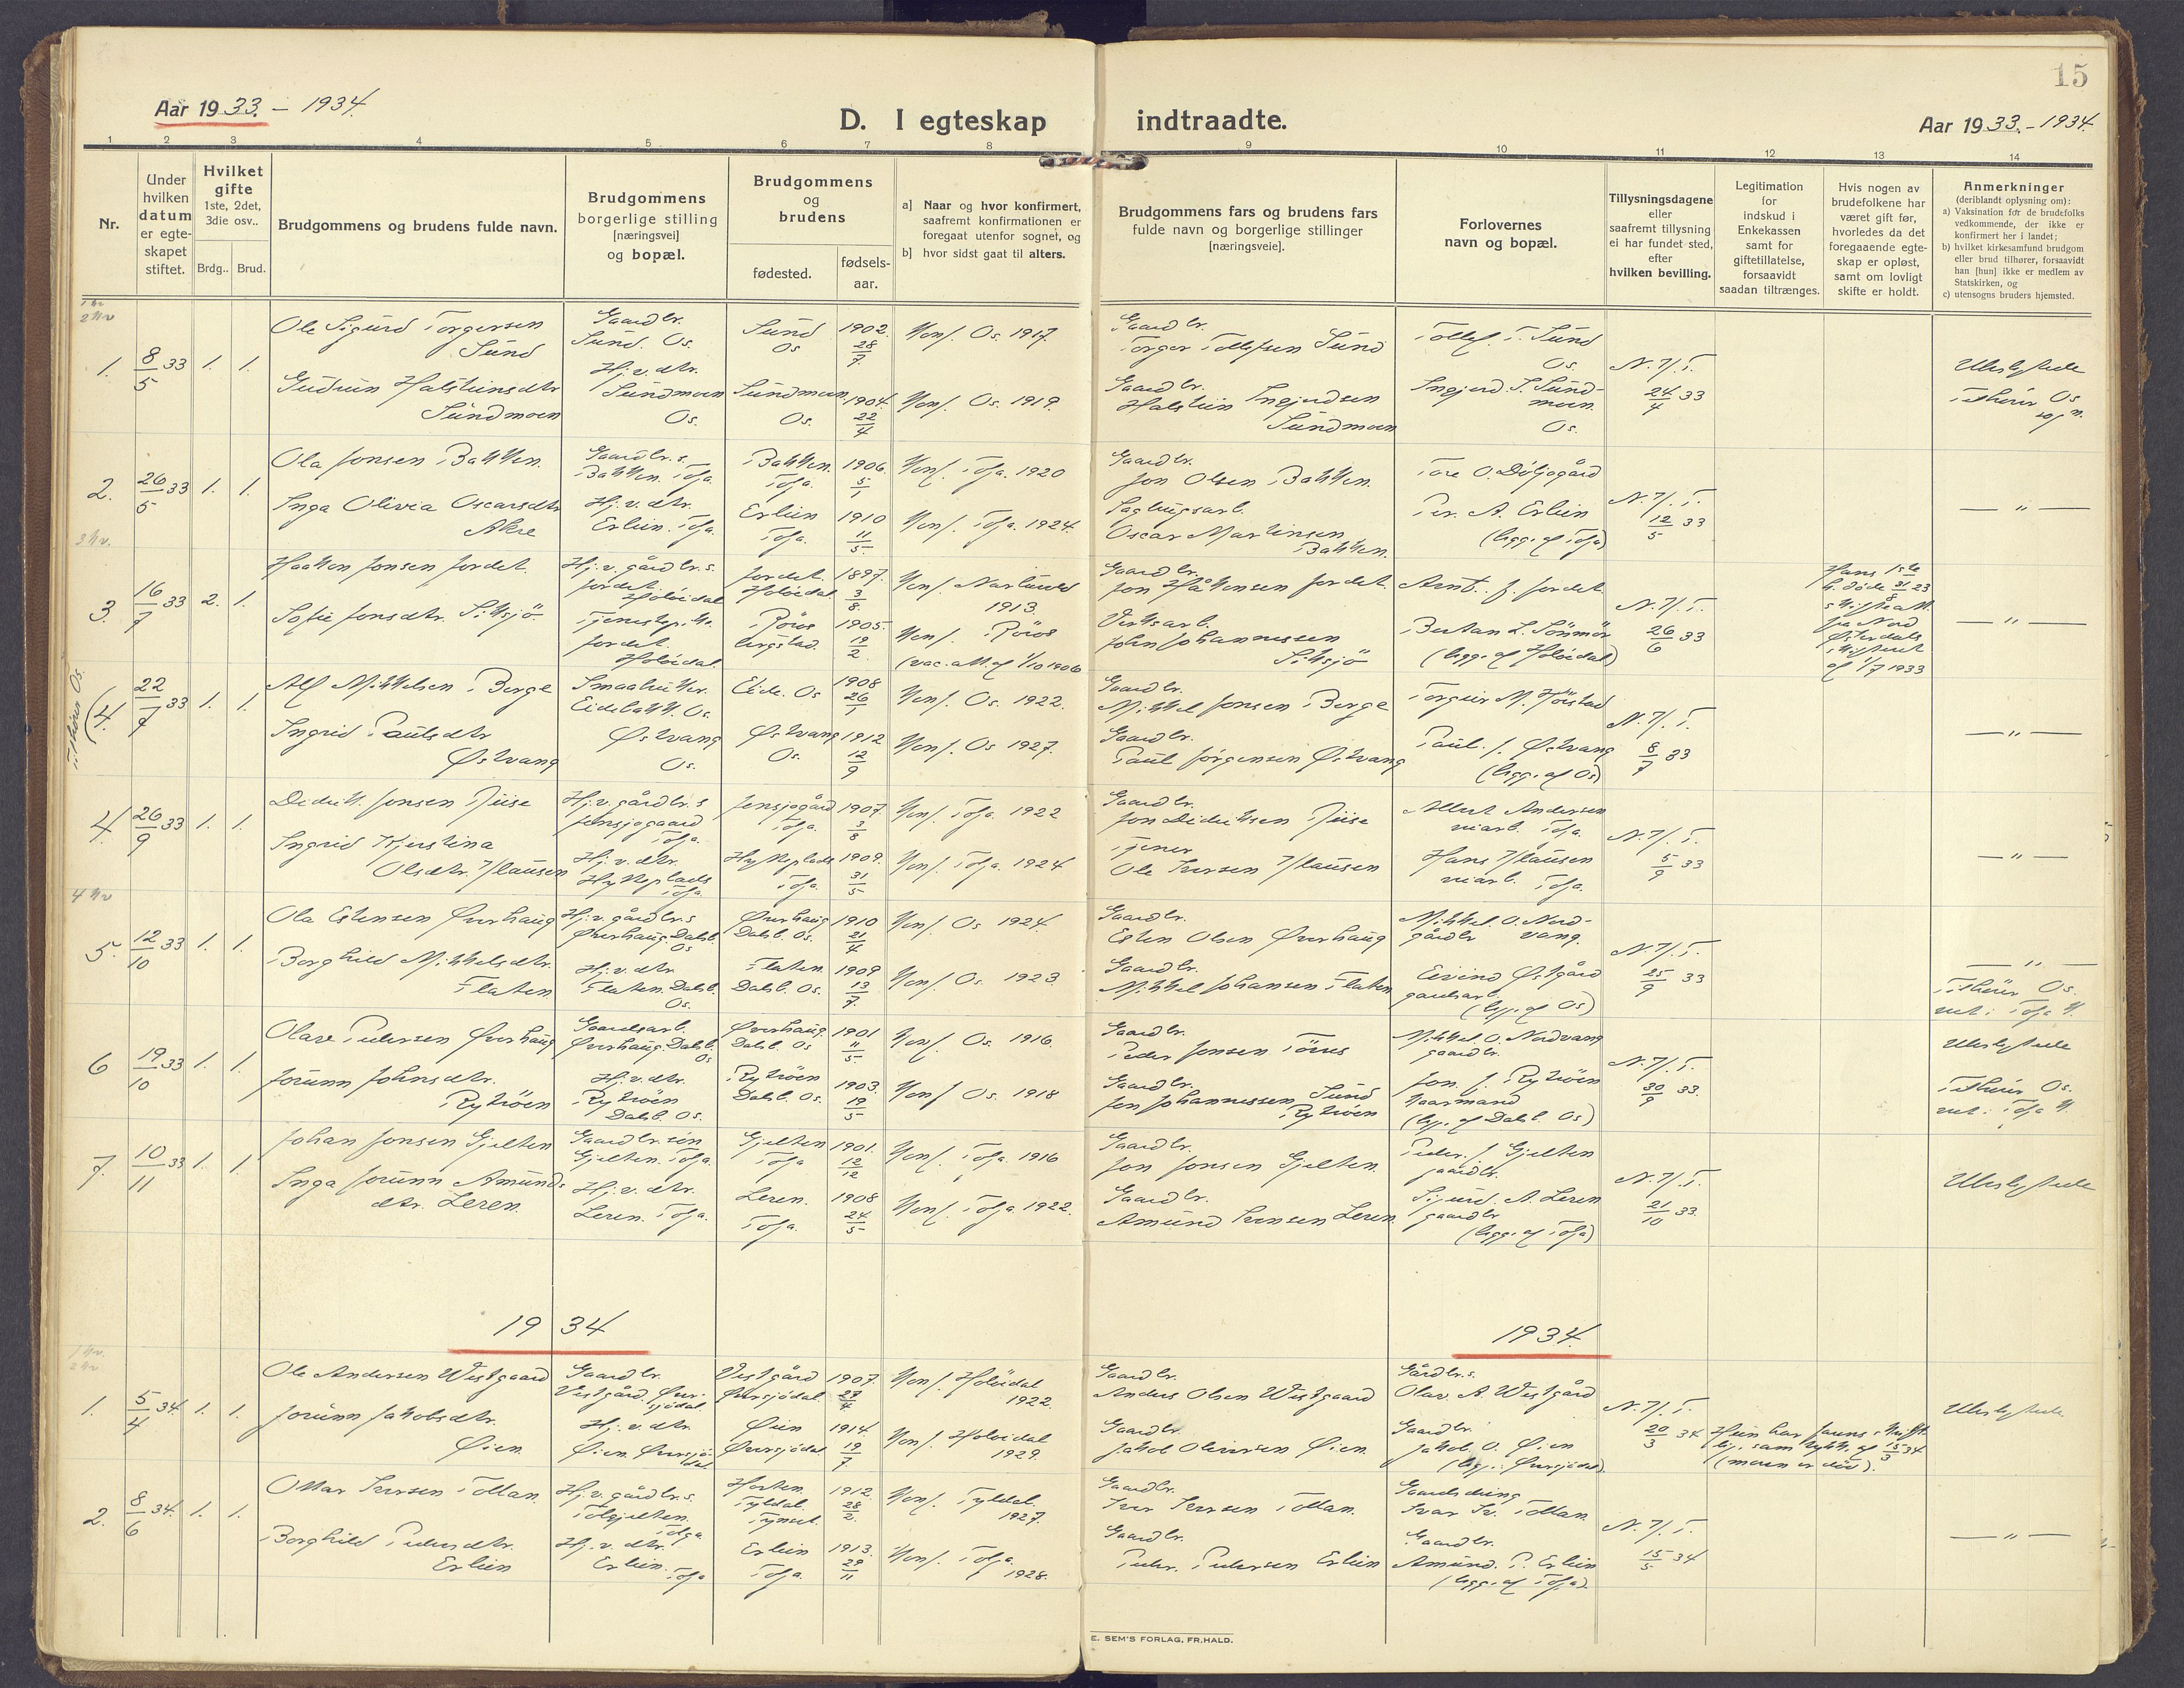 15
Aar 1933. - 1934.
D. I egteskap indtraadte.
Aar 1933. - 1934.
1 2 3 4 5 6 7 8 9 10 11 12 13 14
Nr.
Under hvilken datum er egte-skapet stiftet.
Hvilket gifte
1ste, 2det, 3die osv..
Brdg.. Brud.
Brudgommens og brudens fulde navn.
Brudgommens borgerlige stilling [næringsvei] og bopæl.
Brudgommens og brudens
fødested.
fødsels-aar.
a] Naar og hvor konfirmert, saafremt konfirmationen er foregaat utenfor sognet, og
b] hvor sidst gaat til alters.
Brudgommens fars og brudens fars fulde navn og borgerlige stillinger [næringsveie].
Forlovernes navn og bopæl.
Tillysningsdagene eller saafremt tillysning ei har fundet sted, efter hvilken bevilling.
Legitimation for indskud i Enkekassen samt for giftetillatelse, forsaavidt saadan tiltrænges.
Hvis nogen av brudefolkene har været gift før, hvorledes da det foregaaende egte-skap er opløst, samt om lovligt skifte er holdt.
Anmerkninger
(deriblandt oplysning om):
a) Vaksination før de brudefolks vedkommende, der ikke er konfirmert her i landet;
b) hvilket kirkesamfund brudgom eller brud tilhører, forsaavidt han [hun] ikke er medlem av Statskirken, og
c) utensogns bruders hjemsted.
1 kv
2 kv
1. 8/5 33 1. 1.
Ole Sigurd Torgersen Sund
Gaardbr. Sund. Os.
Sund Os
1902. 28/7
Konf. Os. 1917.
Gaardbr. Torger Tollefsen Sund
Tollef. T. Sund Os.
N. Kl. T. 24/4 33
Gudrun Halsteinsdtr Sundmoen
Hj. v. dtr. Sundmoen Os.
Sundmoen Os.
1904. 22/4
Konf. Os. 1919.
Gaardbr. Halstein Ingjerdsen Sundmoen
Ingjerd. S. Sund-moen. Os.
Tilhörer Os sogn.
2. 26/5 33 1. 1.
Ola Jonsen Bakken.
Gaardbr. s. Bakken. Tolga.
Bakken. Tolga.
1906. 5/1
Konf. Tolga. 1920
Gaardbr. Jon Olsen Bakken.
Tore O. Döljagård
Inga Olivia Oscarsdtr Akre
Hj. v. dtr. Erlien. Tolga.
Erlien Tolga.
1910 11/5
Konf. Tolga. 1924.
Sagbrugsarb. Oscar Martinsen Bakken.
Per. A. Erlien
(begge af Tolga)
N. Kl. T. 12/5 33
— " —
3 kv.
3. 16/7 33 2. 1.
Haakon Jonsen Jordet.
Hj. v. gårdbr. s. Jordet. Holöidal
Jordet. Holöidal.
1897. 3/8
1913.
Gaardbr. Jon Håkensen Jordet.
Arnt. J. Jordet.
Sofie Jonsdtr. Siksjö.
Jordet. Holöidal.
Röros bergstad.
1905. 19/2
Konf. Röros
(vac. att. af 1/10 1906
Verksarb. John Johannessen Siksjö
(begge af Holöidal)
N. Kl. T. 26/6 33
Hans 1ste h. döde 31/8 23
af 1/7 1933
— " —
Tilhörer Os.
(4. 22/7 33 1. 1.
Alf Mikkelsen Berge
Smaabruker. Eidebakk. Os.
Eide. Os
1908 26/1
Konf. Os. 1922.
Gaardbr. Mikkel Jonsen Berge
Torgeir M. Hörstad
Ingrid Paulsdtr Østvang
Østvang Os.
Østvang Os.
1912 12/9
Konf. Os 1927.
Gaardbr. Paul Jörgensen Østvang
Paul. J. Østvang
(begge af Os)
N. Kl. T. 8/7 33
— " —
4. 26/9 33 1. 1.
Didrik Jonsen Riise
Hj. v. gårdbr. s Jensjogaard Tolga.
Jensjogård Tolga.
1907. 3/8
Konf. Tolga. 1922
Gaardbr. Jon Didriksen Riise
Albert Andersen veiarb. Tolga.
Ingrid Kjerstina Olsdtr. Klausen
Hj. v. dtr.
Tolga.
1909. 31/5
Konf. Tolga. 1924
Ole Iversen Klausen
Hans Klausen veiarb. Tolga.
N. Kl. T. 5/9 33
— " —
4 kv
5. 12/10 33 1. 1.
Ola Estensen Øverhaug
Hj. v. gårdbr. s Øverhaug. Dalsb. Os
Øverhaug Dalsb. Os.
1910 21/4
Konf. Os 1924.
Gaardbr. Esten Olsen Øverhaug
Mikkel. O. Nord-vang. gårdbr
Borghild Mikkelsdtr. Flaten
Hj. v. dtr Flaten. Dalsb. Os.
Flaten. Dalsb. Os.
1909 13/7
Konf. Os. 1923.
Gaardbr. Mikkel Johansen Flaten
Eivind Østgård gaardsarb. (begge af Os)
N. Kl. T. 25/9 33
— " —
Tilhörer Os. viet i Tolga K.
6 19/10 33 1. 1.
Olave Pedersen Øverhaug
Gaardsarb. Øverhaug. Dalsb. Os
Øverhaug. Dalsb. Os
1901 11/5
Konf. Os. 1916.
Gaardbr. Peder Jonsen Töres
Mikkel. O. Nordvang gaardbr.
Jorunn Johnsdtr. Rytröen
Hj. v. dtr. Rytröen Dalsb. Os.
Rytröen Dalsb. Os.
1903. 19/5
Konf Os. 1918
Gaardbr. Jon Johannessen Sund Rytröen
Jon. J. Rytröen
(begge af Dalsb. Os)
N. Kl. T. 30/9 33.
Tilhörer Os. viet i Tolga K.
7. 10/11 33 1. 1.
Johan Jonsen Gjelten
Gaardbr. sön Gjelten. Tolga.
Gjelten Tolga
1901. 12/12
Konf. Tolga. 1916
Gaardbr. Jon Jonsen Gjelten.
Peder. J. Gjelten gaardbr.
Inga Jorunn Amunds dtr. Leren.
Hj. v. dtr. Leren. Tolga.
Leren. Tolga.
1908 24/5
Konf. Tolga 1922.
Gaardbr. Amund Iversen Leren.
Sigurd. A. Leren gaardbr (begge af Tolga)
N. Kl. T. 21/10 33.
1934
1934.
1 kv.
2 kv
1. 5/4 34. 1. 1.
Ole Andersen Westgaard
Gaardbr. Vestgård Øver-sjödal.
Vestgård Øversjödal.
1907. 27/4
Konf. Holöidal 1922.
Gaardbr. Anders Olsen Westgaard
Gårdbr. s. Olav. A. Westgård
Jorunn Jakobsdtr. Øien
Hj. v. dtr Øien. Øversjö-dal
Øien Øversjödal.
1914. 19/7
Konf. Holöidal 1929.
Gaardbr. Jakob Oliversen Øien.
Gaardbr. Jakob. O. Øien
(begge i Øversjödal).
N. Kl. T. 20/3 34
Hun har farens skriftlige samtykk. af 15/3 34 (moren er död).
2. 8/6 34. 1. 1.
Ottar Iversen Tollan.
Hj. v. gårdbr. s. Tolgjelten. Tolga
Tyldal. Tynset.
1912. 28/2.
Konf. Tyldal. 1927.
Gaardbr. Iver Iversen Tollan.
Gaardsdreng Ivar Iv. Tollan.
Borghild Pedersdtr. Erlien
Hj. v. dtr. Erlien. Tolga
Erlien Tolga.
1913. 29/11
Konf. Tolga. 1928.
Gaardbr. Peder. Pedersen Erlien
Gaardbr. Amund. P. Erlien (begge af Tolga).
N. Kl. T. 15/5 34
— " —
E. SEM'S FORLAG, FR.HALD.